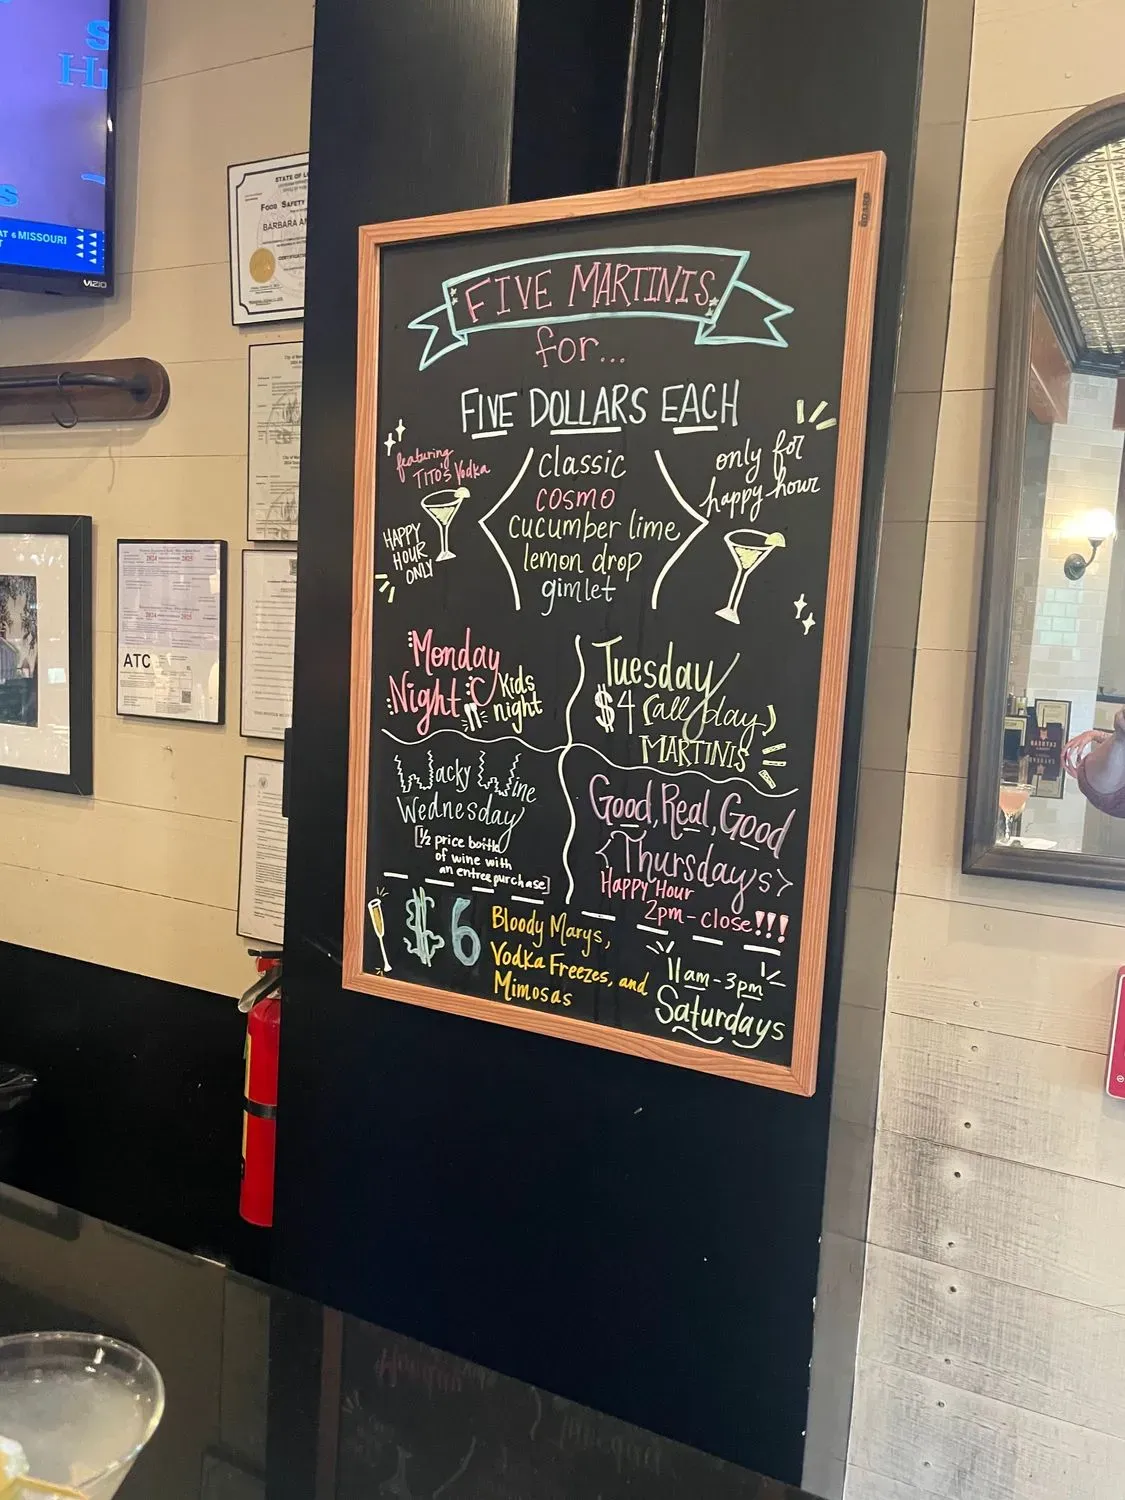 AT 6 MISSOURI
VIZIO
STATE OF
FOOD SAFETY
BARBARA
ATC
FIVE MARTINIS
for...
FIVE DOLLARS EACH
featuring
TITO'S Vodka
HAPPY
HOUR
ONLY
classic
cosmo
cucumber lime
lemon drop
gimlet
only for
happy hour
Monday
Night
Kids
night
Tuesday
$4 (all day)
MARTINIS
Wacky Wine
Wednesday
[1/2 price bottle
of wine with
an entree purchase]
Good, Real, Good
<Thursday's>
Happy Hour
2pm-close!!!
$6
Bloody Marys,
Vodka Freezes, and
Mimosas
11am-3pm
Saturdays